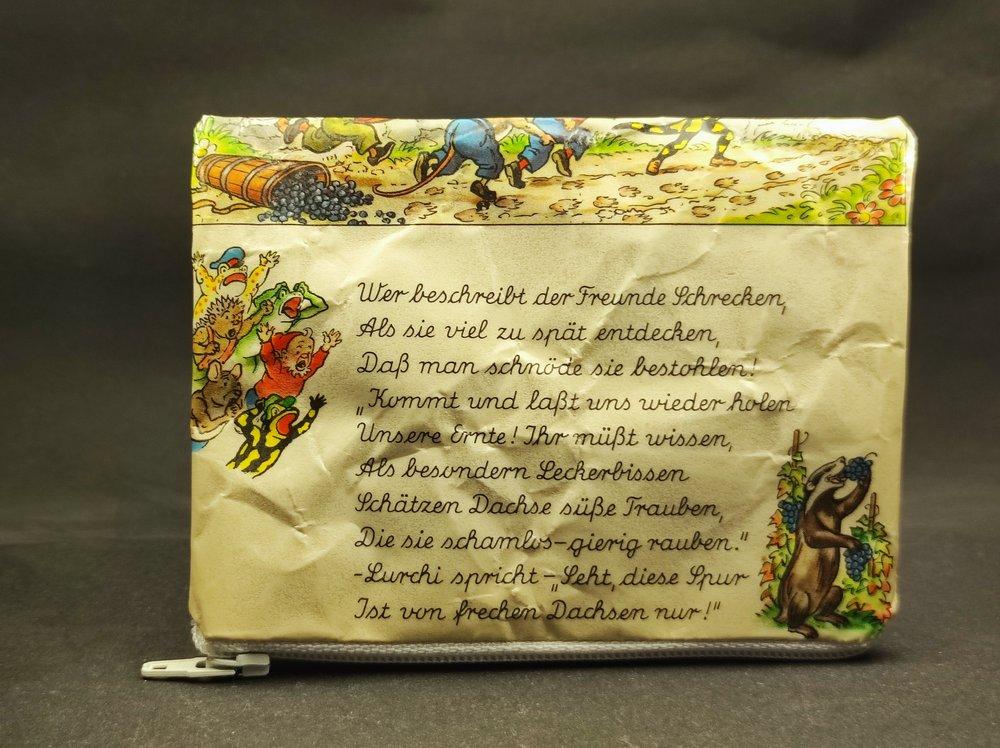 Wer beschreibt der Freunde Schrecken,
Als sie viel zu spät entdecken,
Daß man schnöde sie bestohlen!
„Kommt und laßt uns wieder holen
Unsere Ernte! Ihr müßt wissen,
Als besondern Leckerbissen
Schätzen Dachse süße Trauben,
Die sie schamlos-gierig rauben."
-Lurchi spricht-„Seht, diese Spur
Ist von frechen Dachsen nur!"